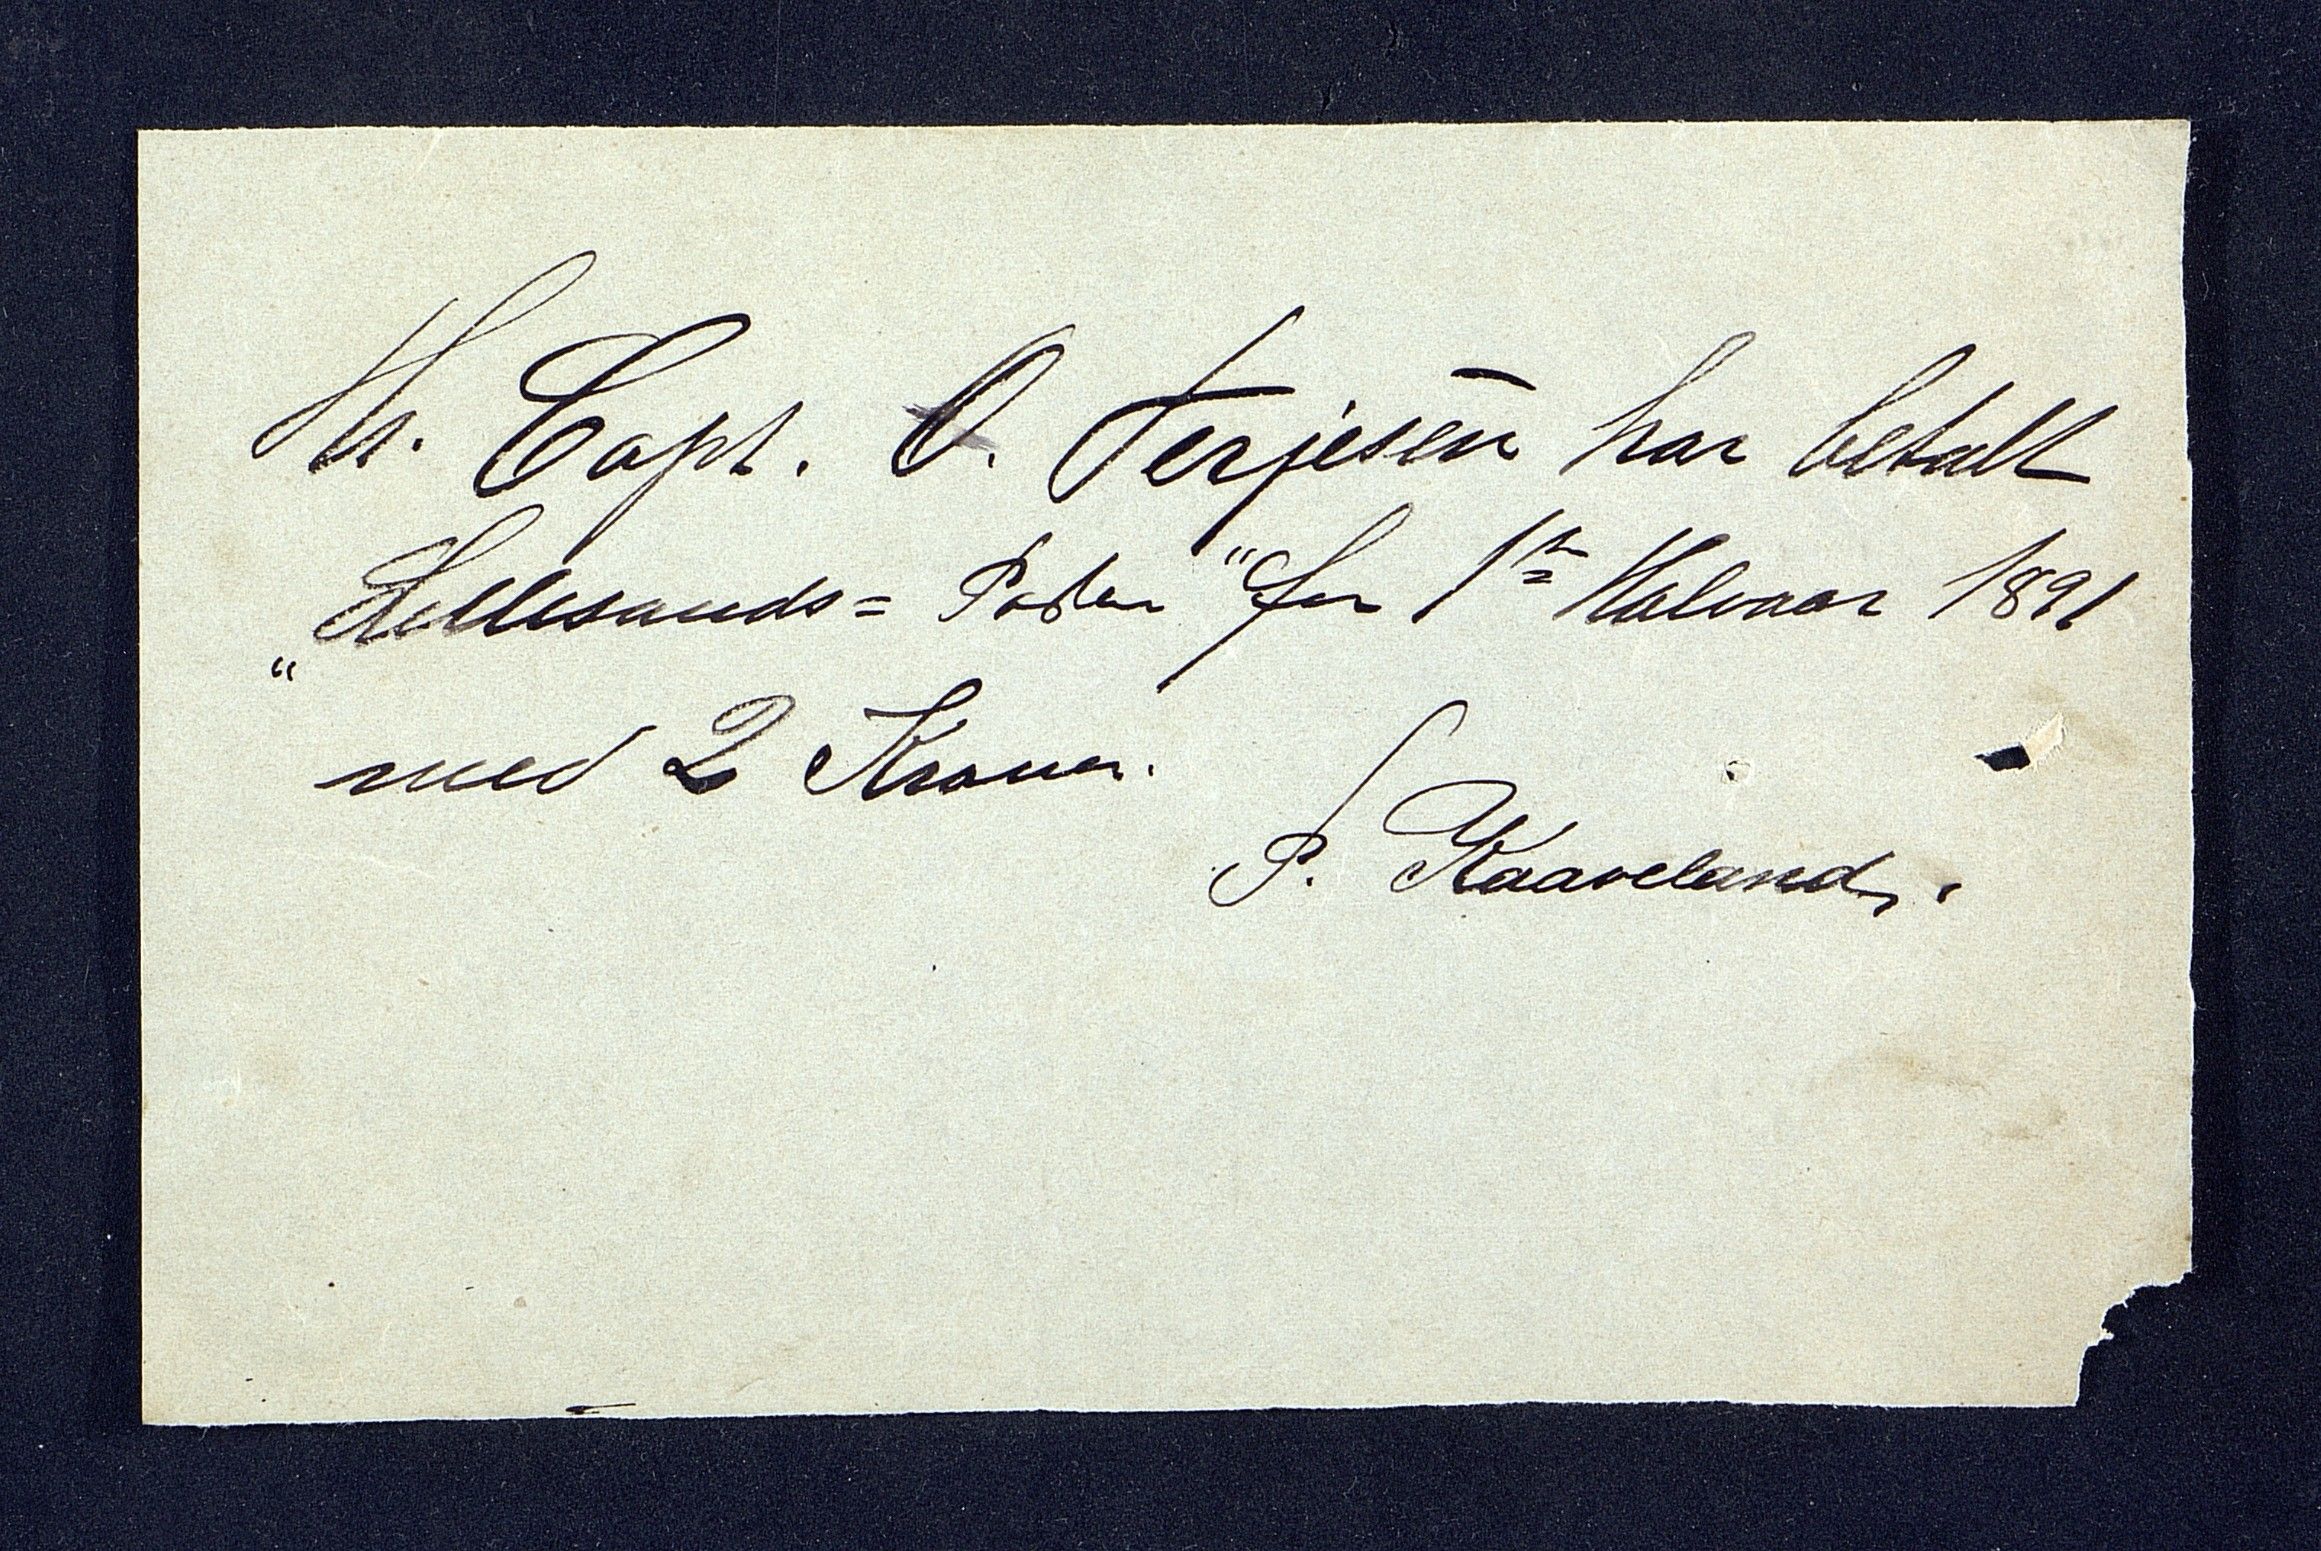 Hr. Capt. O. Terjesen har betalt
„Lillesands= Posten“ for 1ste Halvaar 1891
med 2 Kroner.
P. Kaaveland.